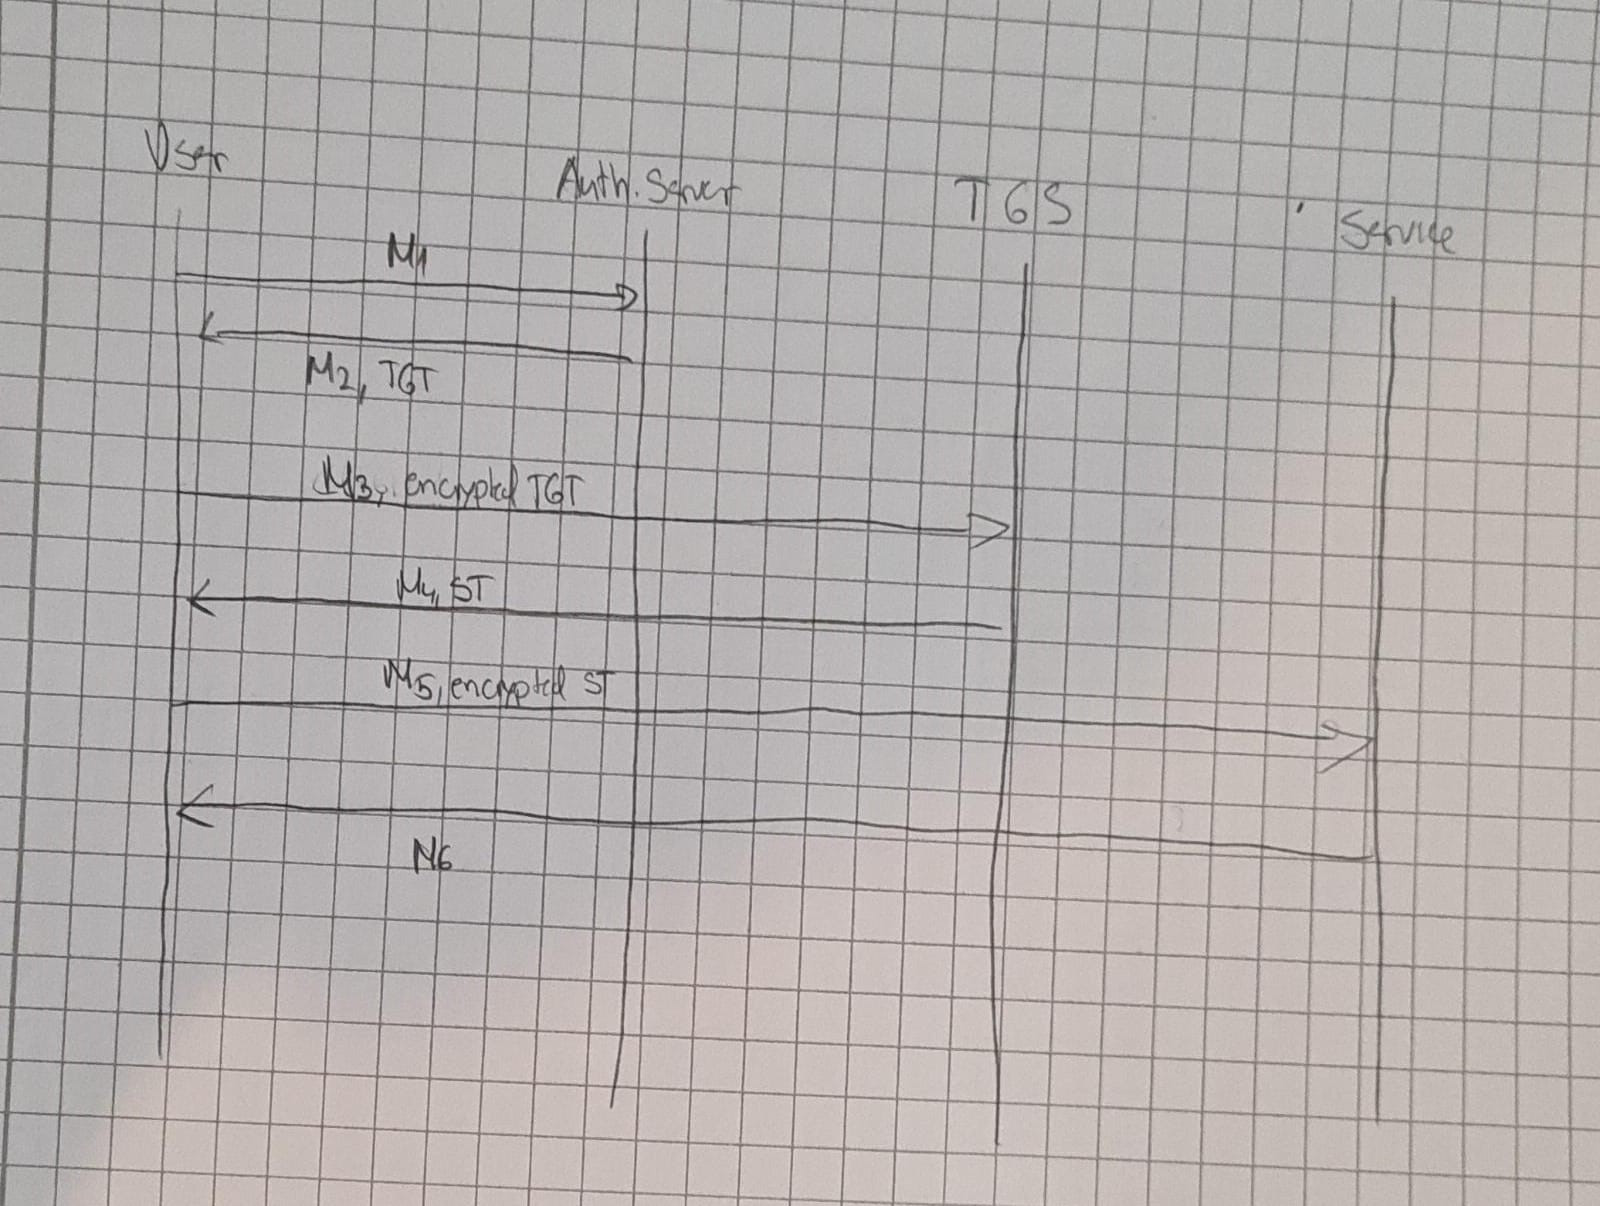 User
Auth. Server
TGS
Service
M1
M2, TGT
M3, encrypted TGT
M4, ST
M5, encrypted ST
M6